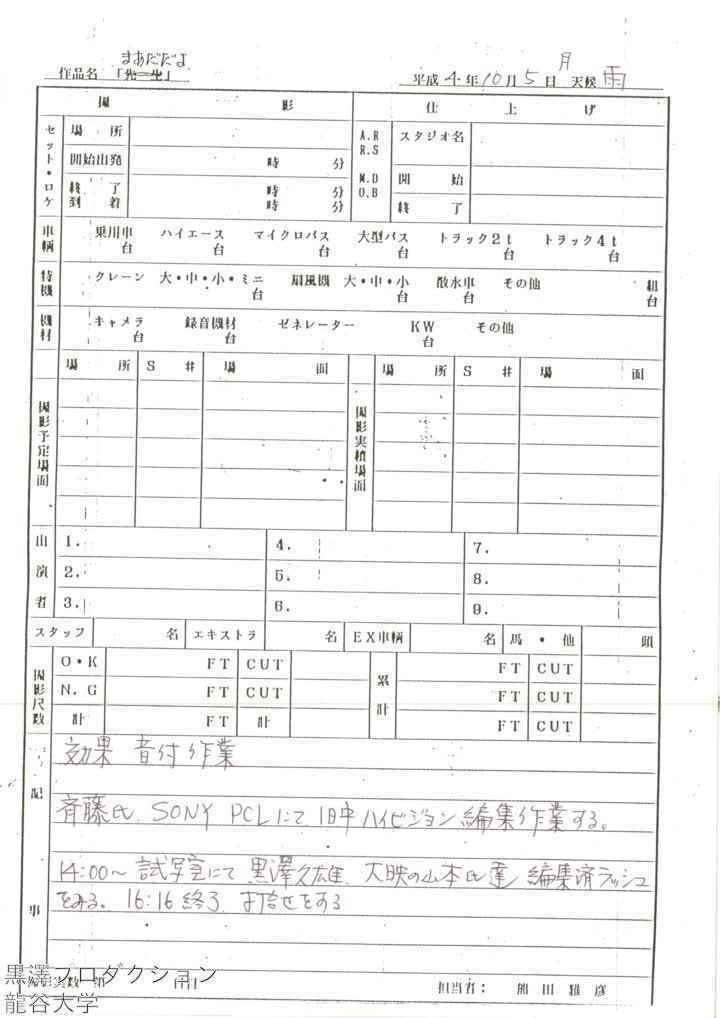 まあだだよ
作品名 「先生」 平成4年10月5日 月 天候 雨
撮 影 仕 上 げ
セット・ロケ 場 所 A.R R.S M.D O.B スタジオ名
開始出発 時 分 開 始
終 了 時 分 終 了
到 着 時 分
車輌 乗用車 台 ハイエース 台 マイクロバス 台 大型バス 台 トラック2t 台 トラック4t 台
特機 クレーン 大・中・小・ミニ 台 扇風機 大・中・小 台 散水車 台 その他 組 台
機材 キャメラ 台 録音機材 台 ゼネレーター KW 台 その他
撮影予定場面 場 所 S # 場 面 撮影実績場面 場 所 S # 場 面
出演者 1. 4. 7.
2. 5. 8.
3. 6. 9.
スタッフ 名 エキストラ 名 EX車輌 名 馬・他 頭
撮影尺数 O・K FT CUT 累計 FT CUT
N.G FT CUT FT CUT
計 FT 計 FT CUT
記事
効果 音付作業
斉藤氏 SONY PCLにて1日中ハイビジョン編集作業する。
14:00〜試写室にて黒澤久雄、大映の山本氏達 編集済ラッシュ
をみる。16:16終了 打合せをする
撮影実数 第 担当者: 熊田雅彦
黒澤プロダクション
龍谷大学